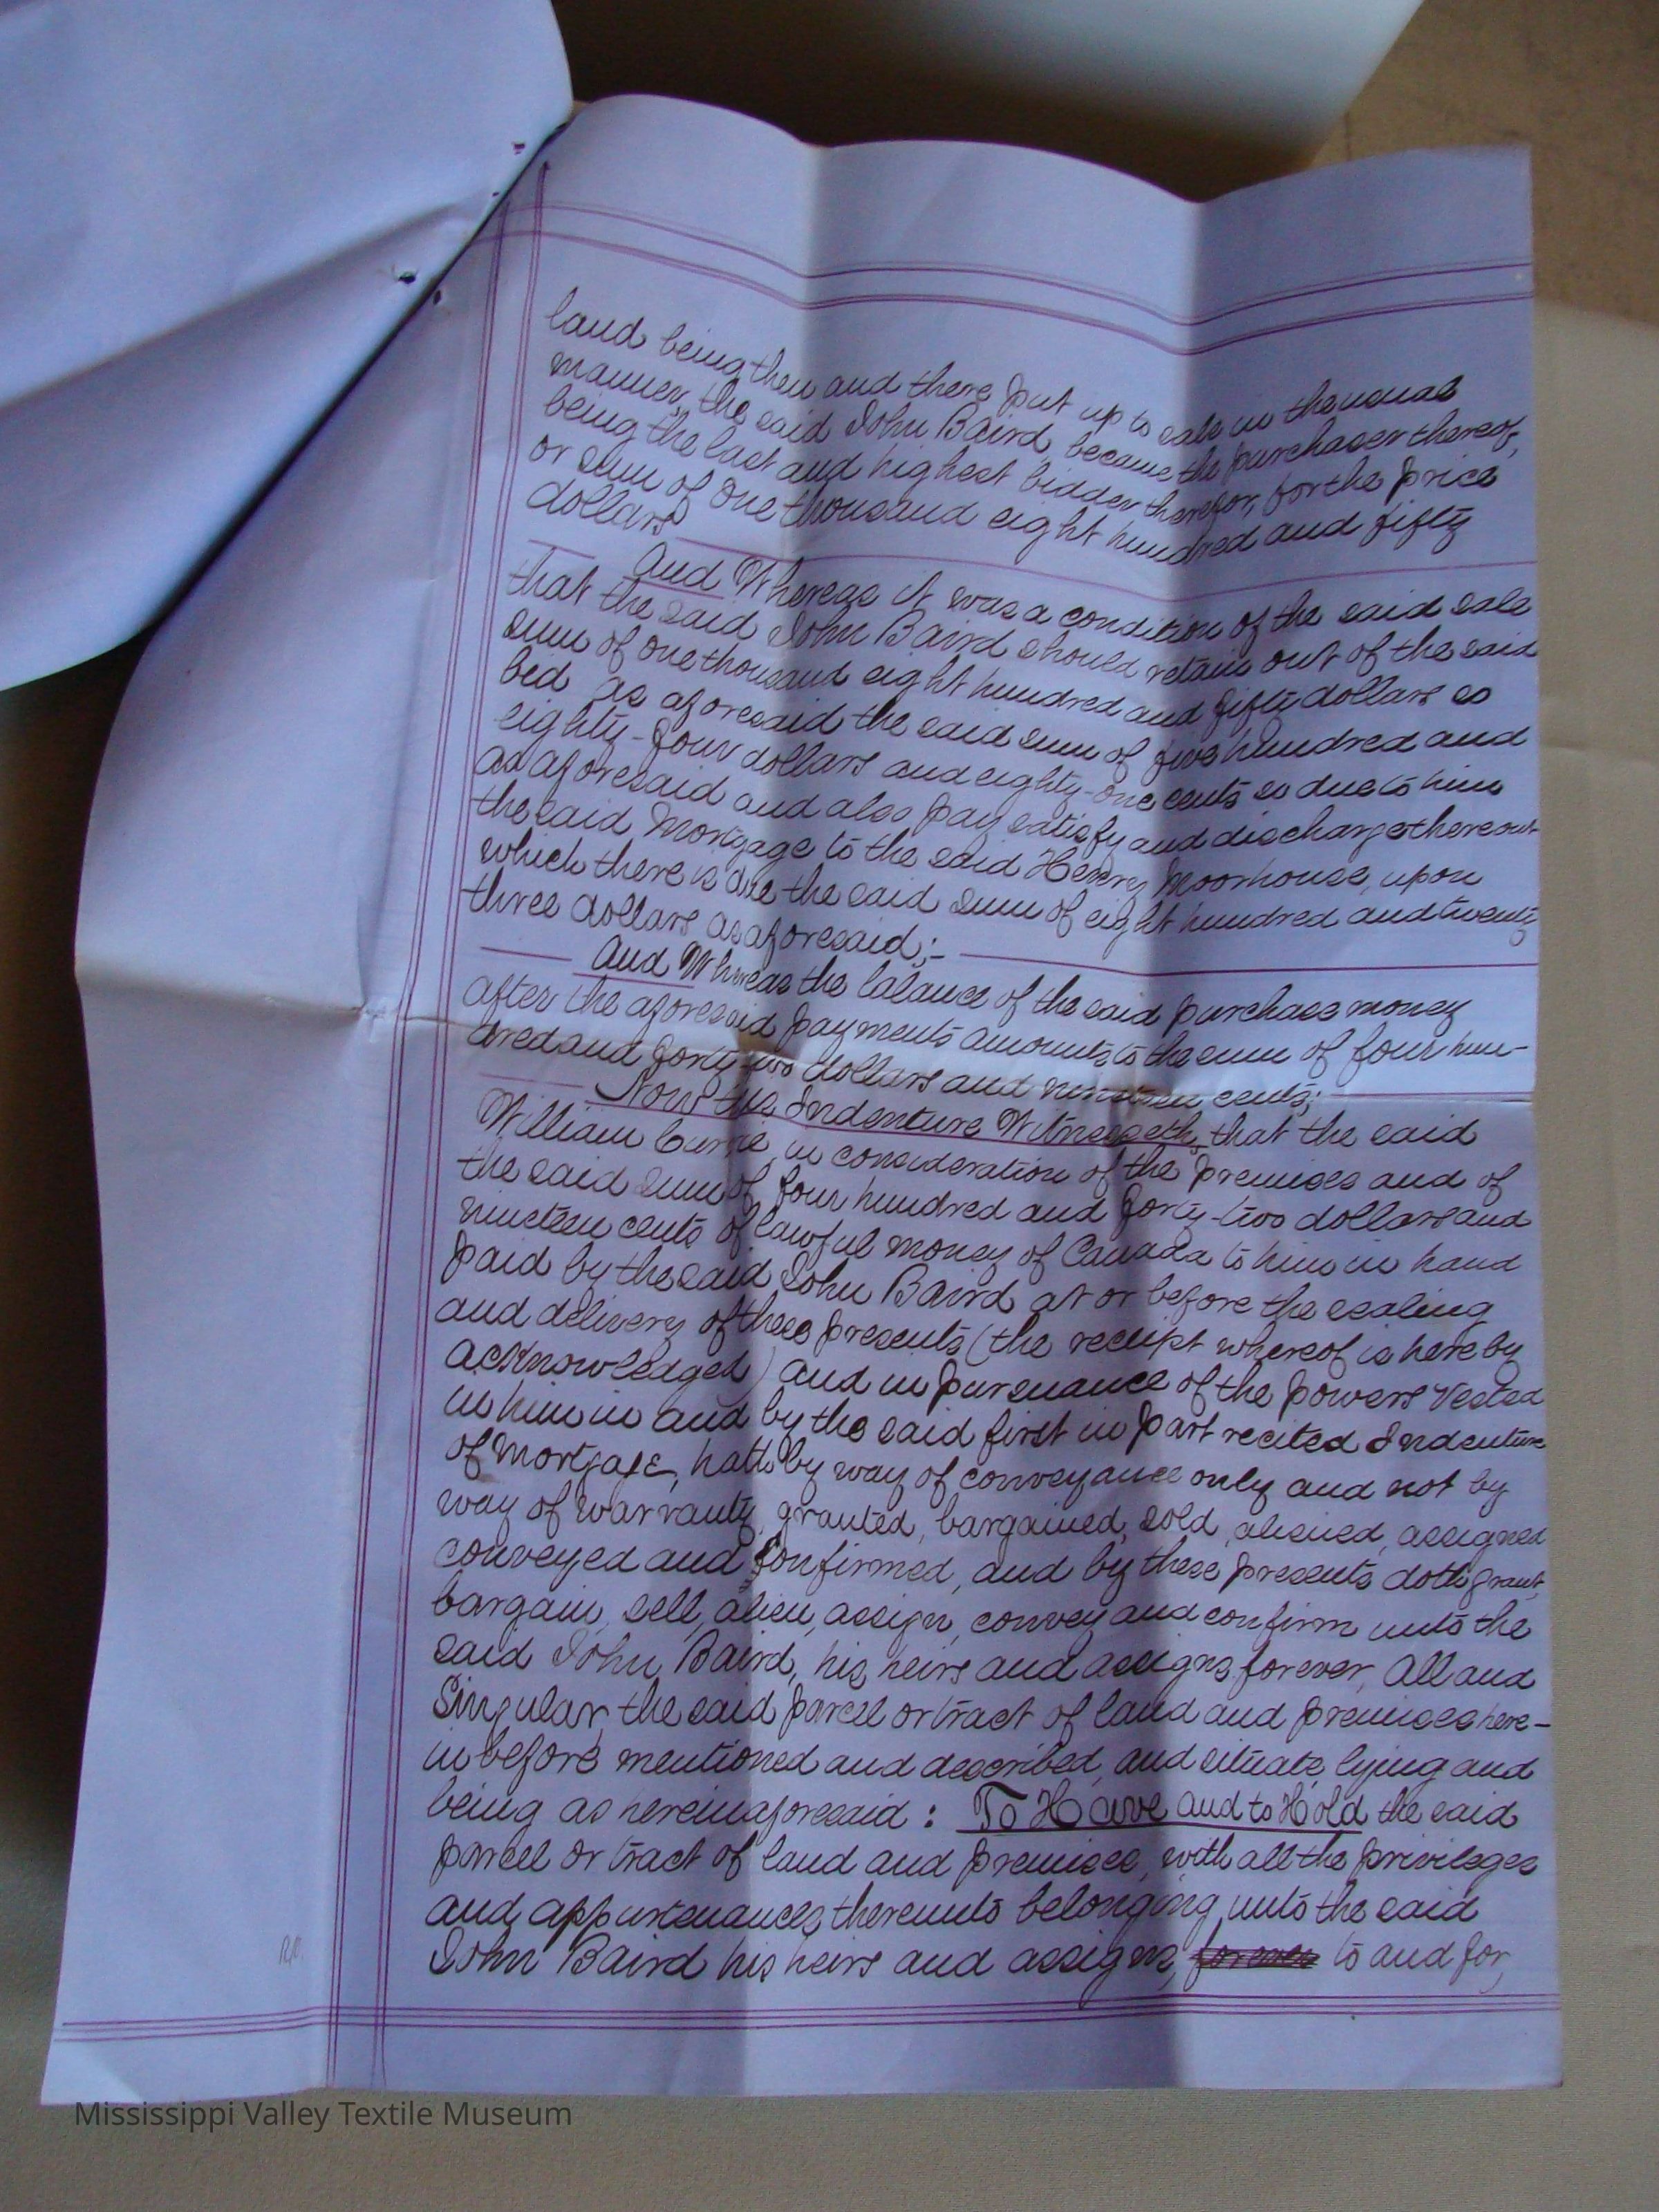 land being then and there put up to sale in the usual
manner, the said John Baird became the purchaser thereof,
being the last and highest bidder therefor, for the price
or sum of One thousand eight hundred and fifty
dollars
And Whereas it was a condition of the said sale
that the said John Baird should retain out of the said
sum of one thousand eight hundred and fifty dollars so
bed as aforesaid the said sum of five hundred and
eighty-four dollars and eighty-one cents so due to him
as aforesaid and also pay satisfy and discharge thereout
the said Mortgage to the said Henry Moorhouse, upon
which there is due the said sum of eight hundred and twenty
three dollars as aforesaid;-
And Whereas the balance of the said purchase money
after the aforesaid payments amounts to the sum of four hun-
dred and forty-two dollars and nineteen cents;
Now this Indenture Witnesseth, that the said
William Currie, in consideration of the premises and of
the said sum of four hundred and forty-two dollars and
nineteen cents of lawful money of Canada to him in hand
paid by the said John Baird at or before the sealing
and delivery of these presents (the receipt whereof is hereby
acknowledged) and in pursuance of the powers vested
in him in and by the said first in part recited Indenture
of Mortgage, hath by way of conveyance only and not by
way of warranty, granted, bargained, sold, aliened, assigned
conveyed and confirmed, and by these presents doth grant,
bargain, sell, alien, assign, convey and confirm unto the
said John Baird, his heirs and assigns forever, All and
Singular, the said parcel or tract of land and premises here-
inbefore mentioned and described, and situate, lying and
being as hereinaforesaid : To Have and to Hold the said
parcel or tract of land and premises, with all the privileges
and appurtenances, thereunto belonging, unto the said
John Baird his heirs and assigns, forever to and for,
R.P.
Mississippi Valley Textile Museum